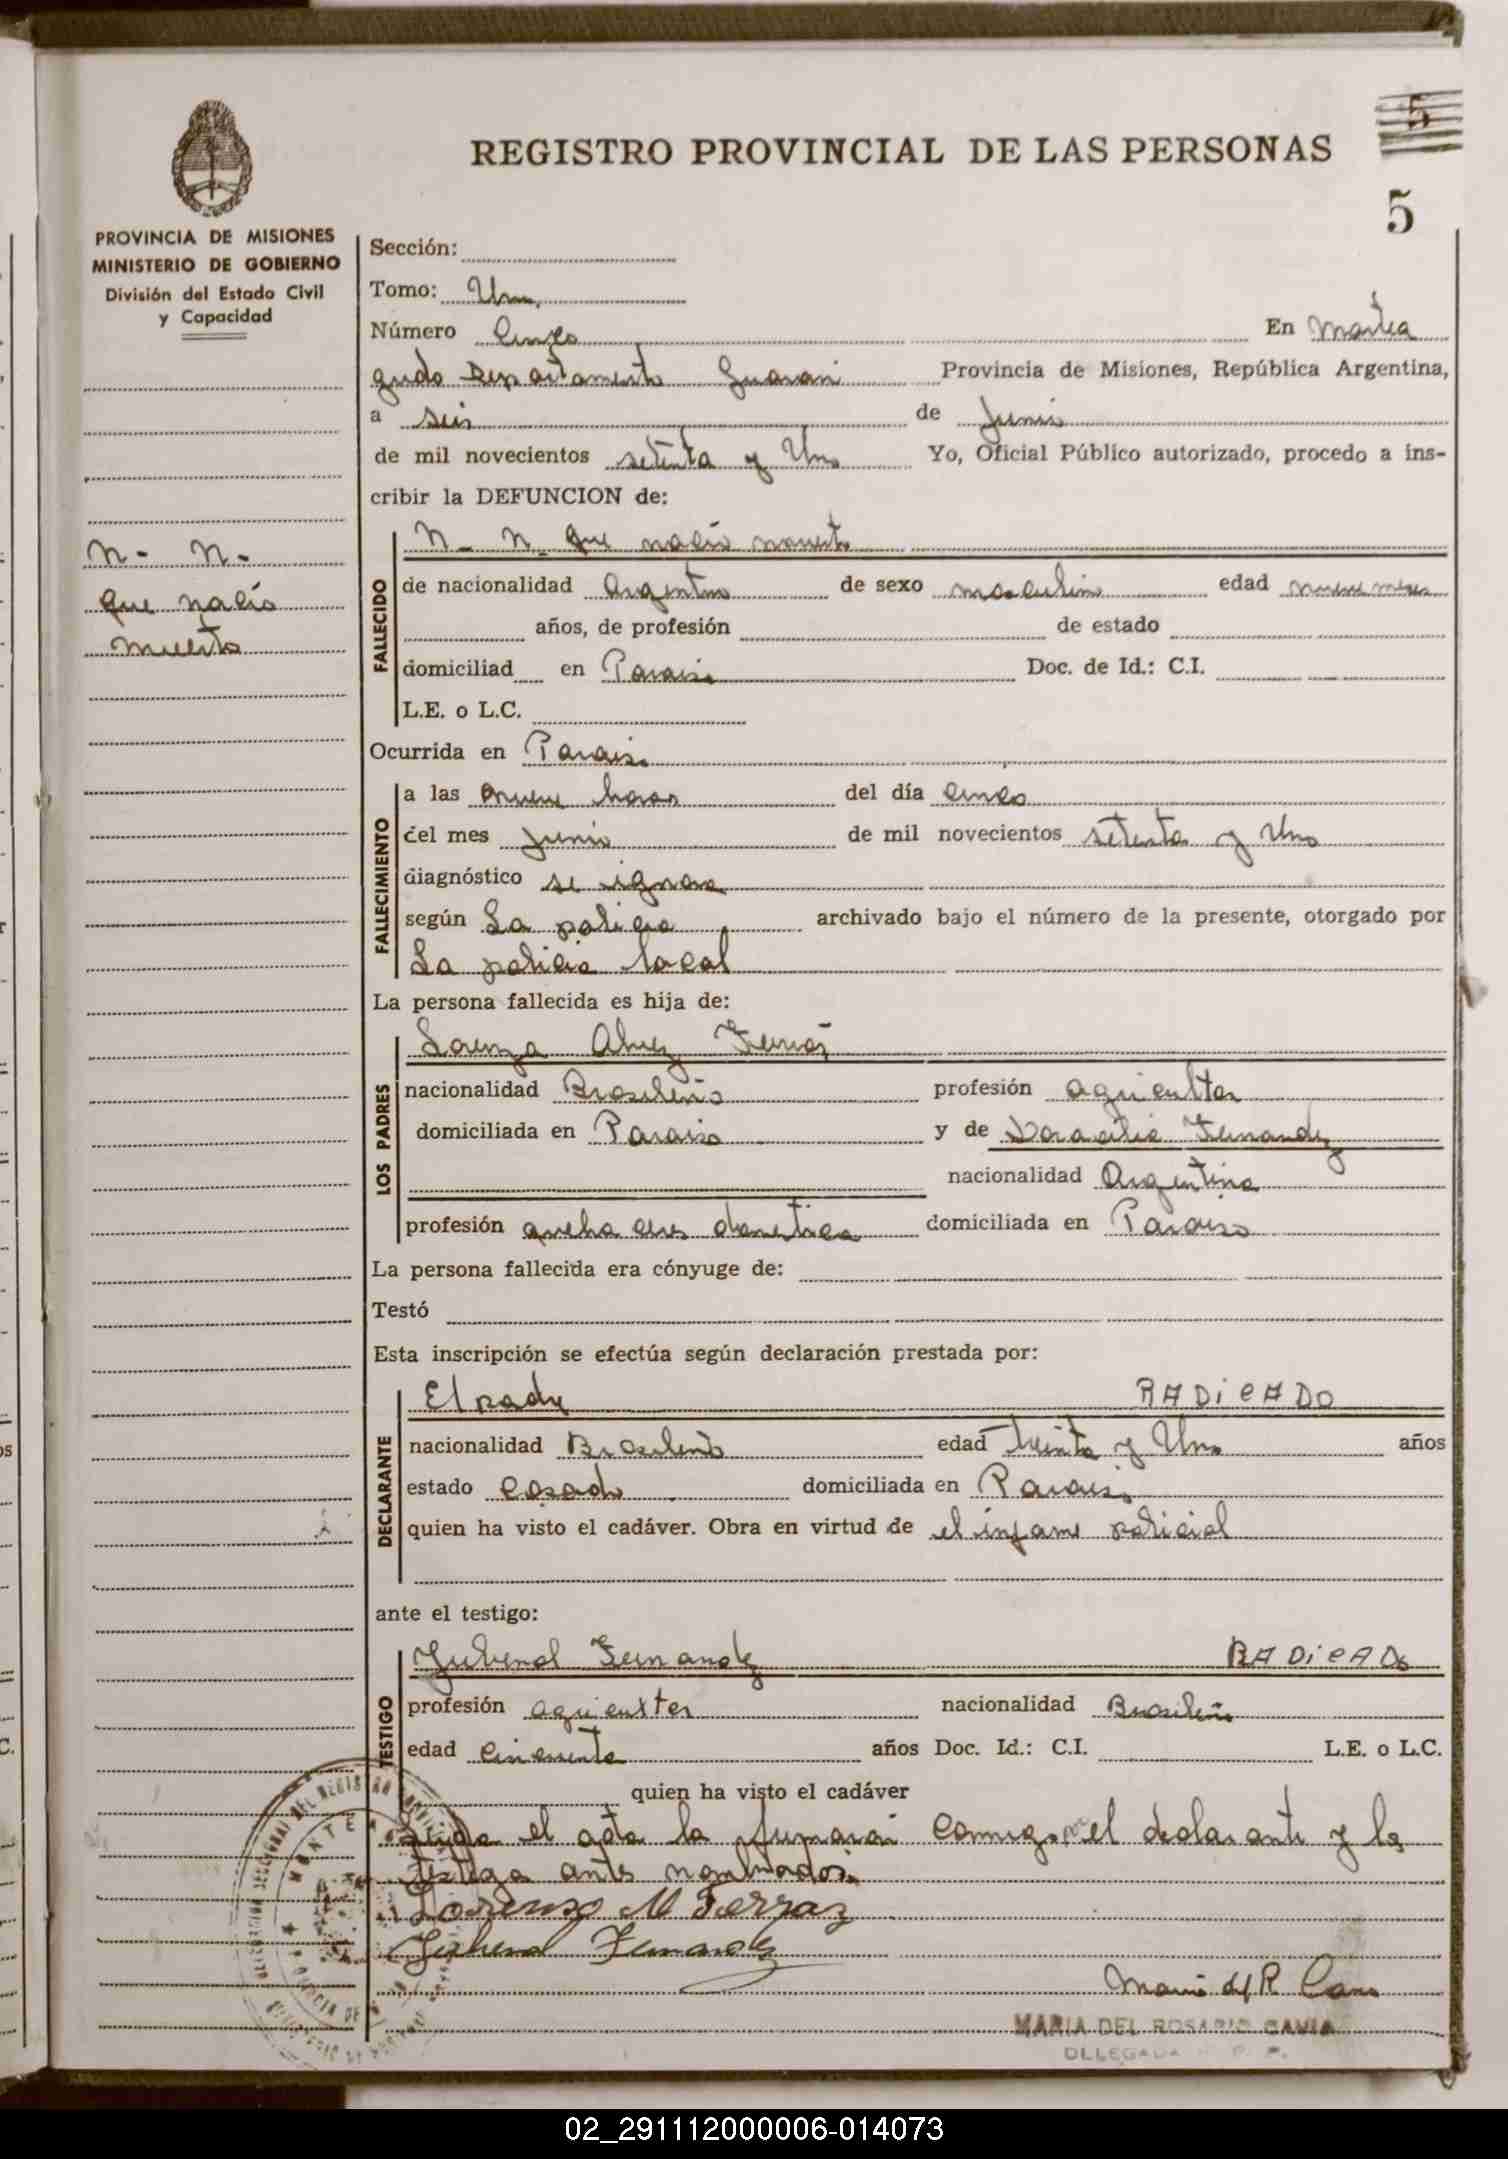 REGISTRO PROVINCIAL DE LAS PERSONAS
5
5
PROVINCIA DE MISIONES
MINISTERIO DE GOBIERNO
División del Estado Civil
y Capacidad
N- N-
que nacio
muerto
Sección:
Tomo: Uno
Número Cinco En Monte a
gudo Departamento Guarani Provincia de Misiones, República Argentina,
a seis de Junio
de mil novecientos setenta y Uno Yo, Oficial Público autorizado, procedo a ins-
cribir la DEFUNCION de:
N- N- que nacio muerto
FALLECIDO
de nacionalidad Argentino de sexo masculino edad nueve meses
años, de profesión de estado
domiciliad en Paraiso Doc. de Id.: C.I.
L.E. o L.C.
Ocurrida en Paraiso
FALLECIMIENTO
a las nueve horas del día cinco
del mes Junio de mil novecientos setenta y Uno
diagnóstico se ignora
según La policia archivado bajo el número de la presente, otorgado por
La policia local
La persona fallecida es hija de:
LOS PADRES
nacionalidad Brasileño profesión agricultor
domiciliada en Paraiso y de Fernandez
nacionalidad Argentina
profesión domestica domiciliada en Paraiso
La persona fallecida era cónyuge de:
Testó
Esta inscripción se efectúa según declaración prestada por:
DECLARANTE
El padre RADiCADO
nacionalidad Brasileño edad treinta y Uno años
estado Casado domiciliada en Paraiso
quien ha visto el cadáver. Obra en virtud de el informe policial
ante el testigo:
TESTIGO
Jubenal Fernandez RADiCADO
profesión agricultor nacionalidad Brasileño
edad Cincuenta años Doc. Id.: C.I. L.E. o L.C.
quien ha visto el cadáver
Leida el acta la firmaran conmigo el declarante y
testigo antes nombrados.
Lorenzo M Ferraz
Jubenal Fernandez
Maria del R
MARIA DEL ROSARIO GAVIA
DELEGADA R. P. P.
02_291112000006-014073